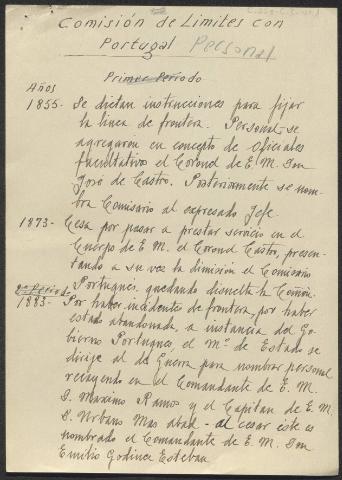 Comisión de Limites con
Portugal Personal
Primer Periodo
Años
1855- Se dictan instrucciones para fijar
la linea de frontera. Personal- se
agregaron en concepto de oficiales
facultativo el Coronel de E. M. Don
José de Castro. Posteriormente se nom-
bra Comisario al expresado Jefe.
1873- Cesa por pasar a prestar servicio en el
Cuerpo de E. M. el Coronel Castro, presen-
tando a su vez la dimisión el Comisario
Portugues, quedando disuelta la Comón.
2º Periodo
1883- Por haber incidentes de frontera, por haber
estado abandonada, a instancia del Go-
bierno Portugues, el Mº de Estado se
dirije al de Guerra para nombrar personal
recayendo en el Comandante de E. M.
D. Maximo Ramos y el Capitan de E. M.
D. Urbano Mas abad - al cesar este es
nombrado el Comandante de E. M. Don
Emilio Godinez Esteban